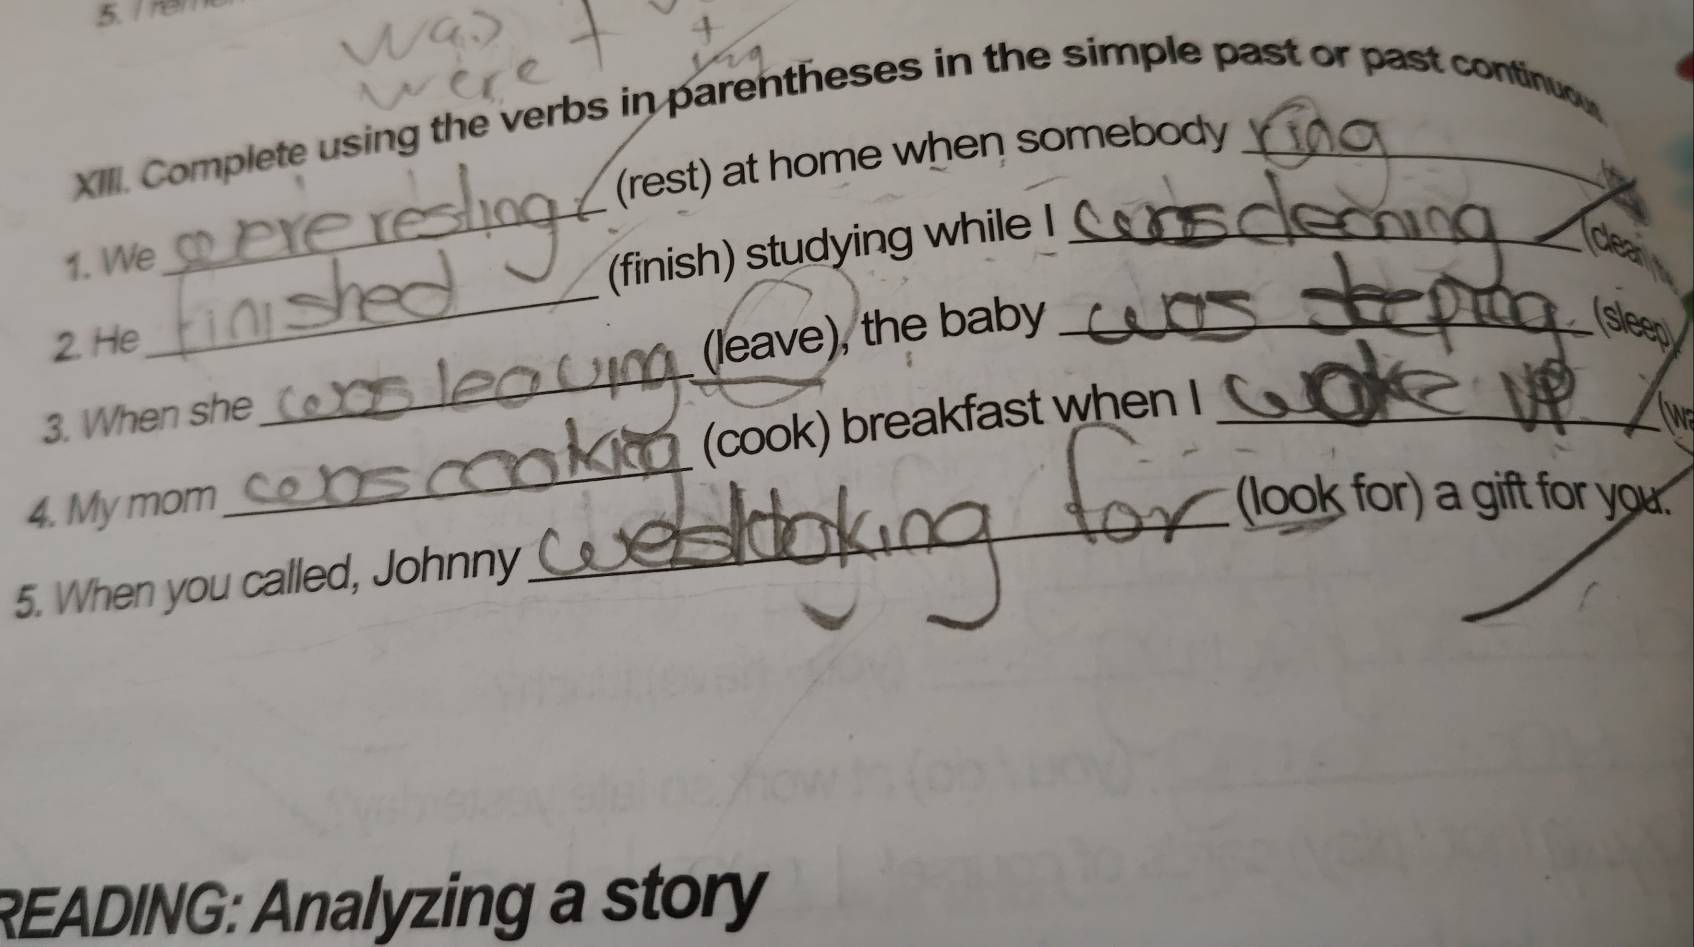 was +
were + ing
XIII. Complete using the verbs in parentheses in the simple past or past continuous
1. We were resting (rest) at home when somebody ring
2. He finished (finish) studying while I was cleaning (clean)
3. When she was leaving (leave), the baby was sleeping (sleep)
4. My mom was cooking (cook) breakfast when I woke up
5. When you called, Johnny was looking for (look for) a gift for you.
READING: Analyzing a story